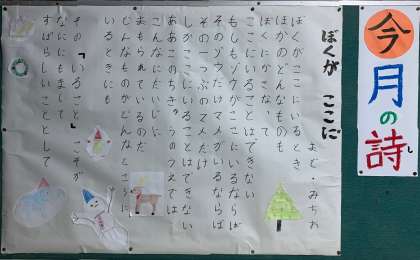 今月の詩
し
ぼくが ここに
まど・みちお
ぼくが ここに いるとき
ほかの どんなものも
ぼくに かさなって
ここに いることは できない
もしも ゾウが ここに いるならば
そのゾウだけ マメが いるならば
その一つぶの マメだけ
しか ここに いることは できない
ああ このちきゅうの うえでは
こんなに だいじに
まもられているのだ
どんなものが どんなところに
いるときにも
その「いること」こそが
なににも まして
すばらしいこと として